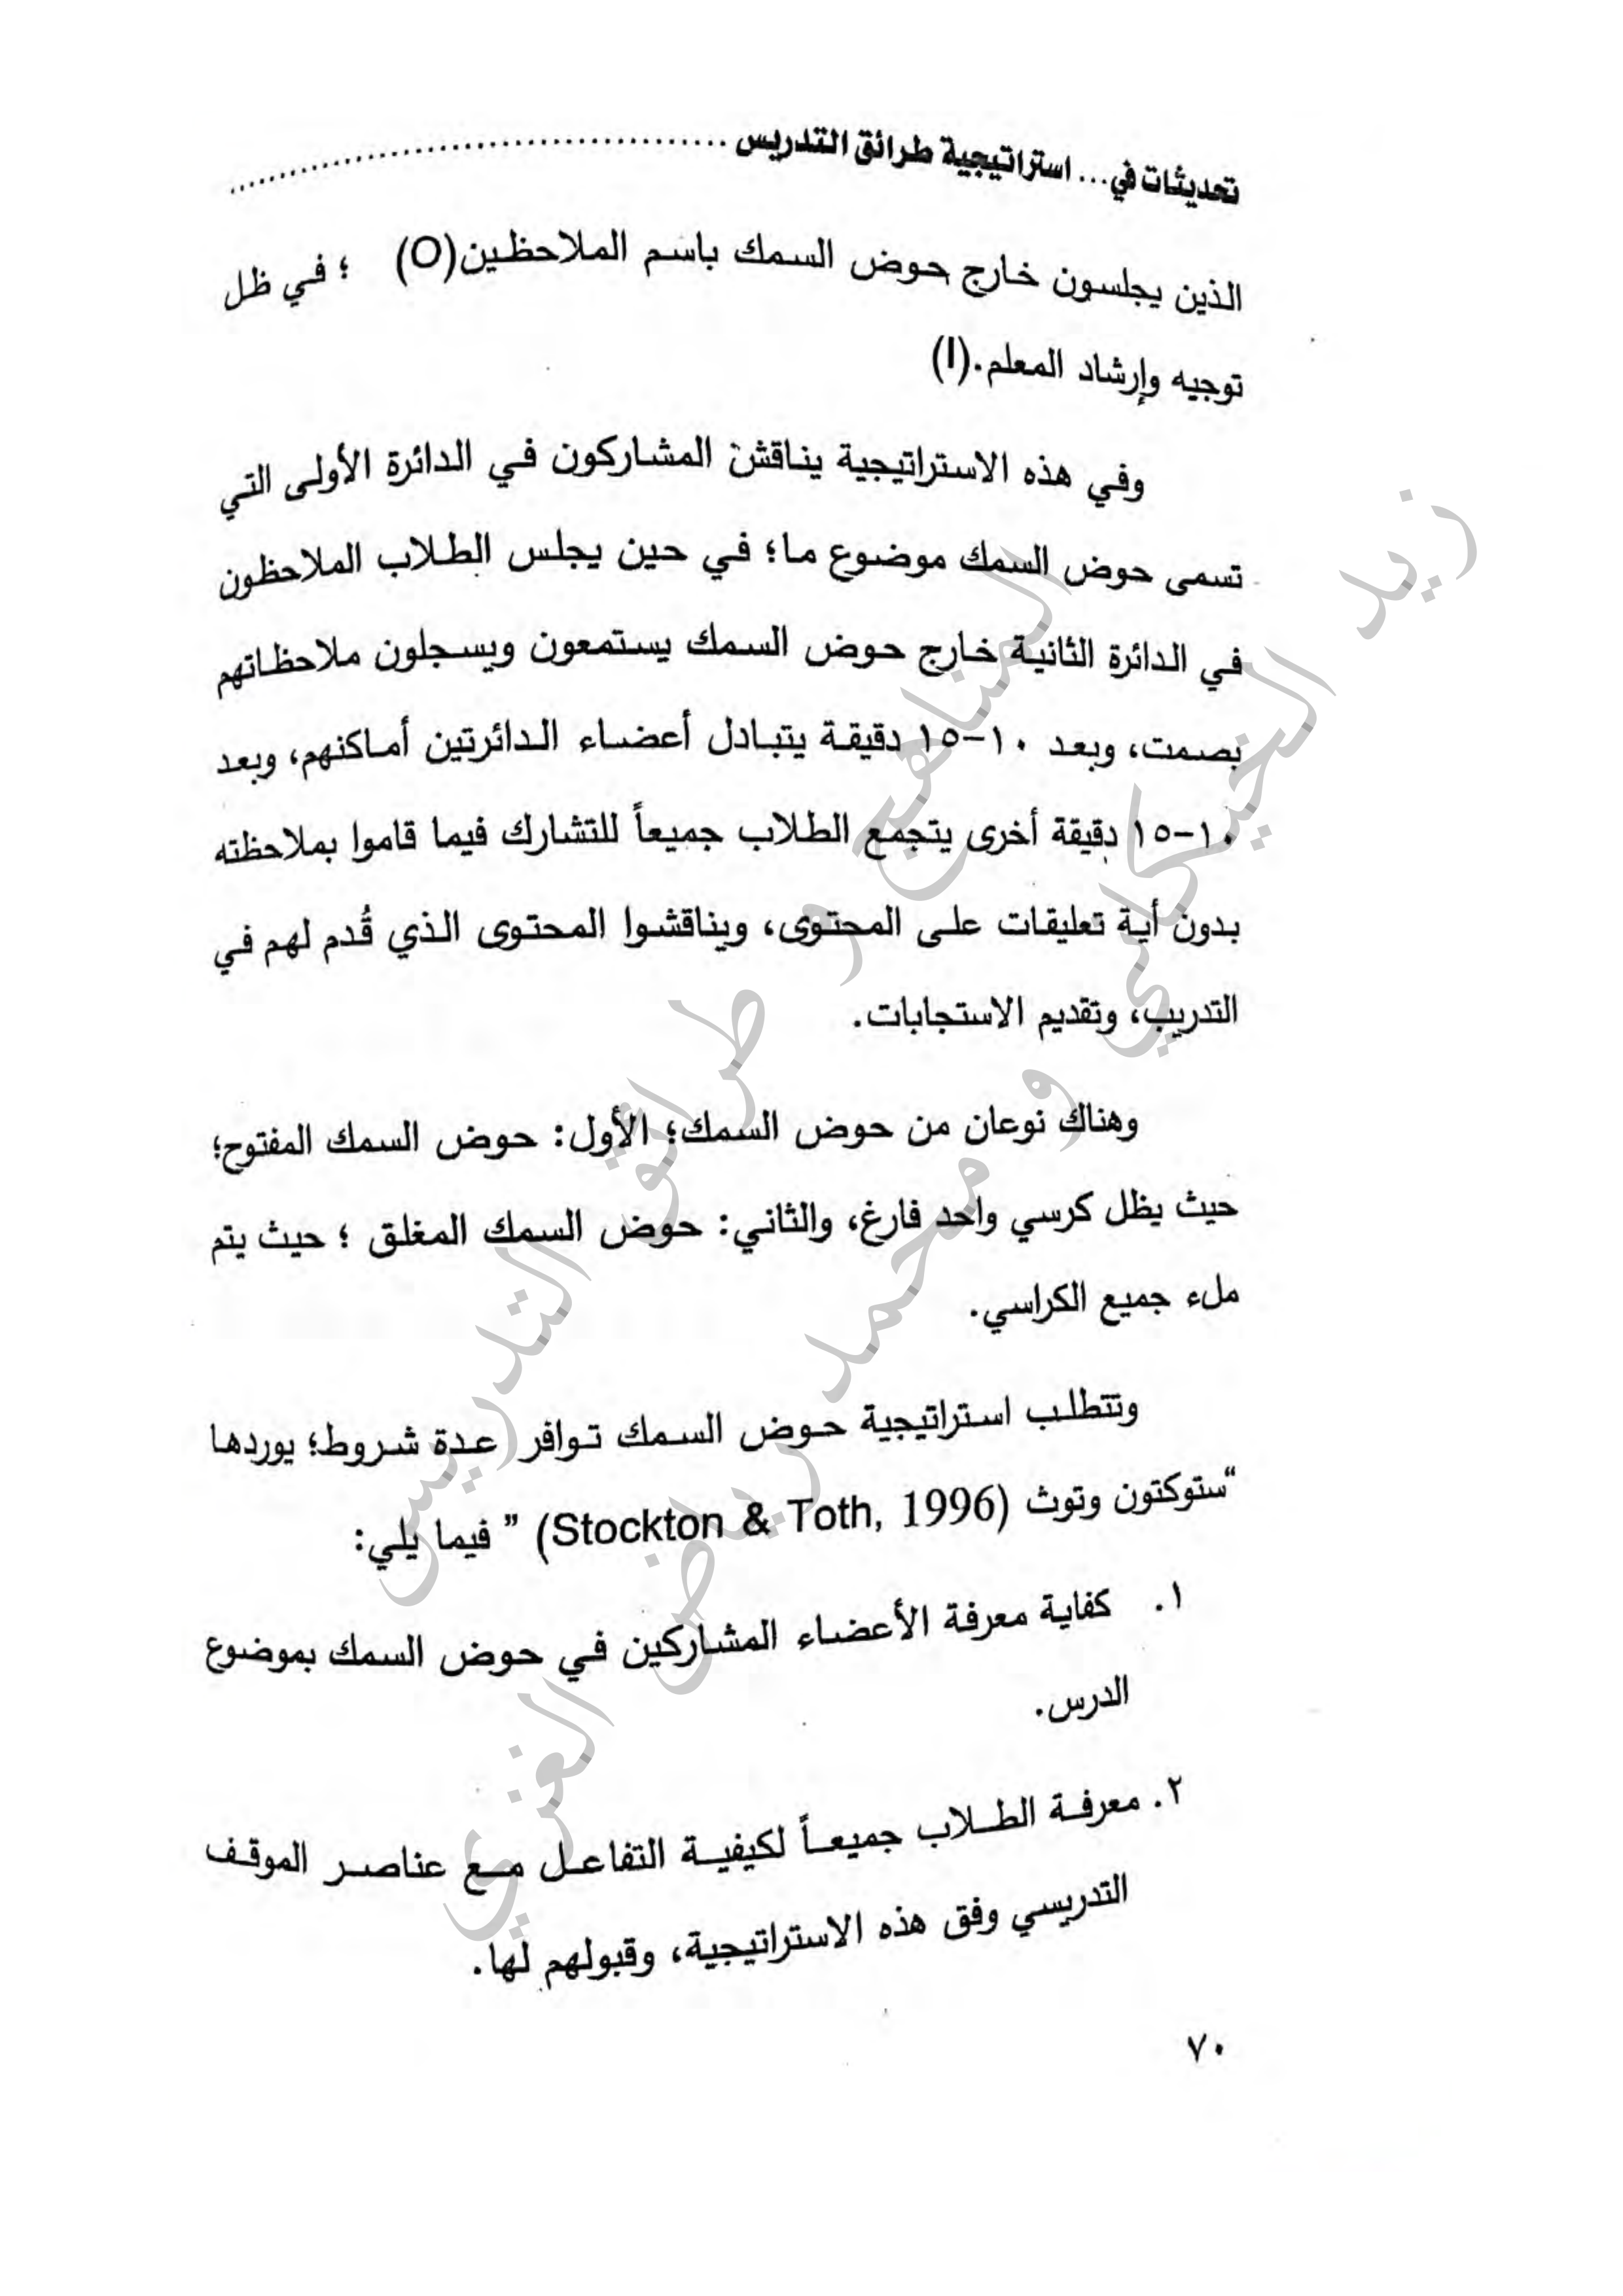 تحديثات في... استراتيجية طرائق التدريس
الذين يجلسون خارج حوض السمك باسم الملاحظين(O) ؛ في ظل
توجيه وإرشاد المعلم.(I)
وفي هذه الاستراتيجية يناقش المشاركون في الدائرة الأولى التي
تسمى حوض السمك موضوع ما؛ في حين يجلس الطلاب الملاحظون
في الدائرة الثانية خارج حوض السمك يستمعون ويسجلون ملاحظاتهم
بصمت، وبعد ١٠-١٥ دقيقة يتبادل أعضاء الدائرتين أماكنهم، وبعد
١٠-١٥ دقيقة أخرى يتجمع الطلاب جميعاً للتشارك فيما قاموا بملاحظته
بدون أية تعليقات على المحتوى، ويناقشوا المحتوى الذي قُدم لهم في
التدريب، وتقديم الاستجابات.
وهناك نوعان من حوض السمك؛ الأول: حوض السمك المفتوح؛
حيث يظل كرسي واحد فارغ، والثاني: حوض السمك المغلق ؛ حيث يتم
ملء جميع الكراسي.
وتتطلب استراتيجية حوض السمك توافر عدة شروط؛ يوردها
“ستوكتون وتوث (Stockton & Toth, 1996) ” فيما يلي:
١. كفاية معرفة الأعضاء المشاركين في حوض السمك بموضوع
الدرس.
٢. معرفة الطلاب جميعاً لكيفية التفاعل مع عناصر الموقف
التدريسي وفق هذه الاستراتيجية، وقبولهم لها.
٧٠
المناهج و طرائق التدريس
زيد الخيكاني و محمد رياض الغزي